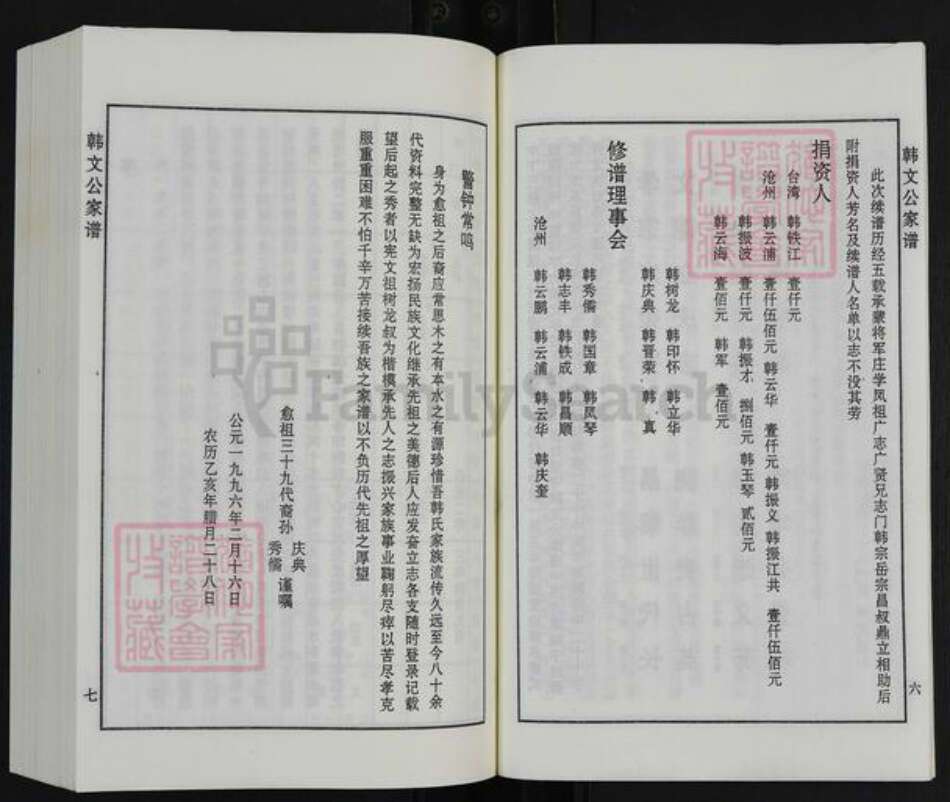 韩文公家谱
此次续谱历经五载承蒙将军庄学凤祖广志广贤兄志门韩宗岳宗昌叔鼎立相助后
附捐资人芳名及续谱人名单以志不没其劳
捐资人
台湾 韩铁江 壹仟元
沧州 韩云浦 壹仟伍佰元 韩云华 壹仟元 韩振义 韩振江共 壹仟伍佰元
韩振波 壹仟元 韩振才 捌佰元 韩玉琴 贰佰元
韩云海 壹佰元 韩军 壹佰元
修谱理事会
韩树龙 韩印怀 韩立华
韩庆典 韩晋荣 韩真
韩秀儒 韩国章 韩凤琴
韩志丰 韩铁成 韩昌顺
沧州 韩云鹏 韩云浦 韩云华 韩庆奎
六
韩文公家谱
警钟常鸣
身为愈祖之后裔应常思木之有本水之有源珍惜吾韩氏家族流传久远至今八十余
代资料完整无缺为宏扬民族文化继承先祖之美德后人应发奋立志各支随时登录记载
望后起之秀者以宪文祖树龙叔为楷模承先人之志振兴家族事业鞠躬尽瘁以苦尽孝克
服重重困难不怕千辛万苦接续吾族之家谱以不负历代先祖之厚望
愈祖三十九代裔孙 庆典 秀儒 谨嘱
公元一九九六年二月十六日
农历乙亥年腊月二十八日
七
FamilySearch